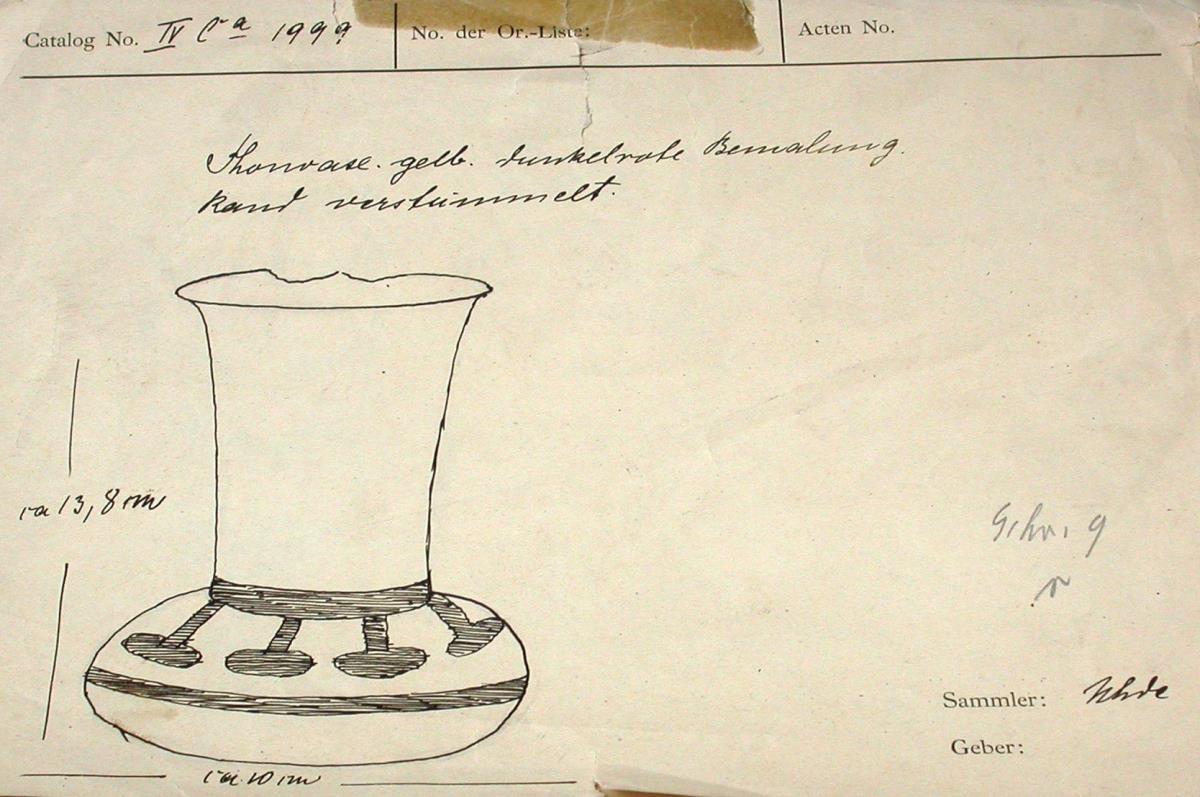 Catalog No. IV Ca 1999
No. der Or.-Liste:
Acten No.
Thonvase. gelb. dunkelrote Bemalung.
Rand verstümmelt.
ca 13,8 cm
Schr. 9
Sammler: Uhde
Geber:
ca. 10 cm